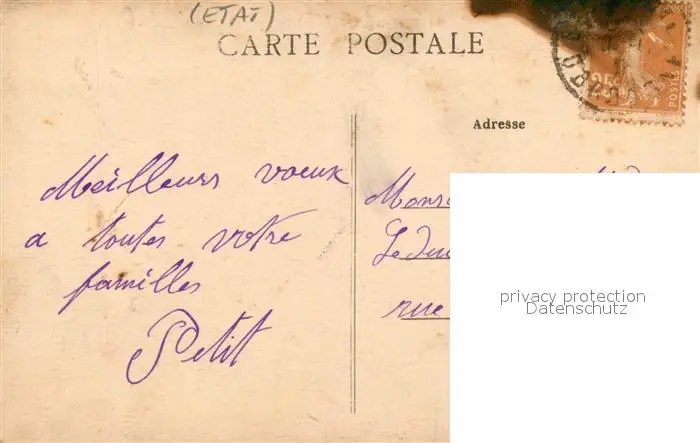 (ETAT)
CARTE POSTALE
Adresse
Meilleurs voeux
a toutes votre
familles
Petit
rue
privacy protection
Datenschutz
25c
POSTES